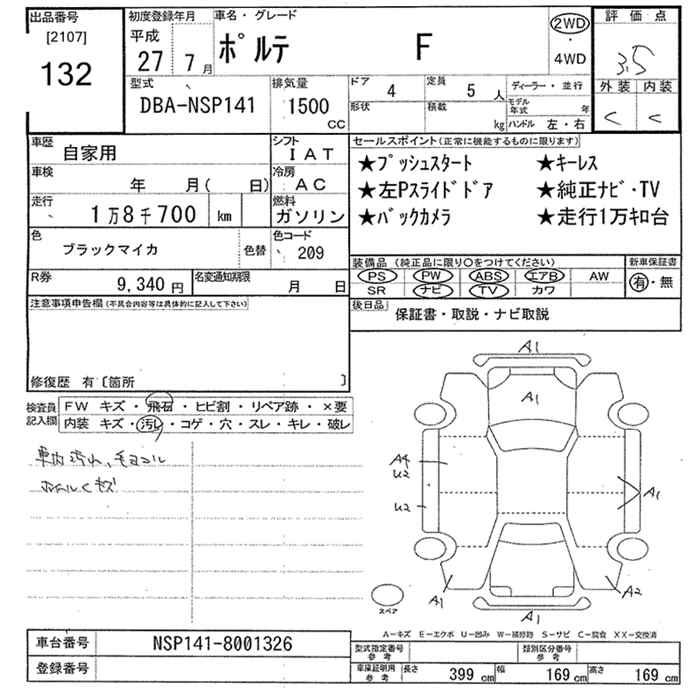 出品番号 初度登録年月 車名・グレード 評価点
[2107] 平成 ポルテ F 2WD・4WD 3.5
132 27 7月 外装 内装
C C
型式 排気量 ドア 4 定員 5人 ディーラー・並行
DBA-NSP141 1500 CC 形状 積載 kg モデル年式 年
ハンドル 左・右
車歴 自家用 シフト IAT セールスポイント(正常に機能するものに限ります)
車検 年 月( 日) 冷房 AC ★プッシュスタート ★キーレス
走行 1万8千700 km 燃料 ガソリン ★左Pスライドドア ★純正ナビ・TV
★バックカメラ ★走行1万キロ台
色 ブラックマイカ 色替 色コード 209
装備品(純正品に限り○をつけてください) 新車保証書
R券 9,340円 名変通知期限 月 日 PS PW ABS エアB AW 有・無
SR ナビ TV カワ
注意事項申告欄(不具合内容等は具体的に記入して下さい) 後日品 保証書・取説・ナビ取説
修復歴 有〔箇所 〕
検査員記入欄 FW キズ・飛石・ヒビ割・リペア跡・×要
内装 キズ・汚レ・コゲ・穴・スレ・キレ・破レ
車内汚れ、
キズ
A1
A1
A4
U2
U2
A1
A1
A2
A1
スペア
A-キズ E-エクボ U-凹み W-補修跡 S-サビ C-腐食 XX-交換済
車台番号 NSP141-8001326 型式指定番号 参考 類別区分番号 参考
登録番号 車庫証明用 参考 長さ 399 cm 幅 169 cm 高さ 169 cm